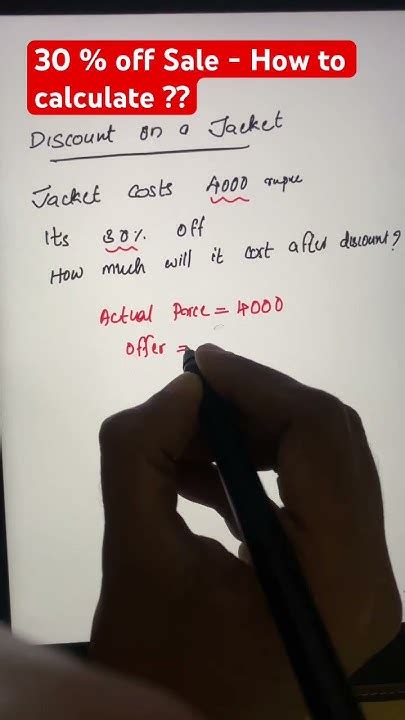 30 % off Sale - How to
calculate ??
Discount on a Jacket
Jacket costs 4000 rupee
Its 30% off
How much will it cost after discount?
Actual Porce = 4000
Offer =